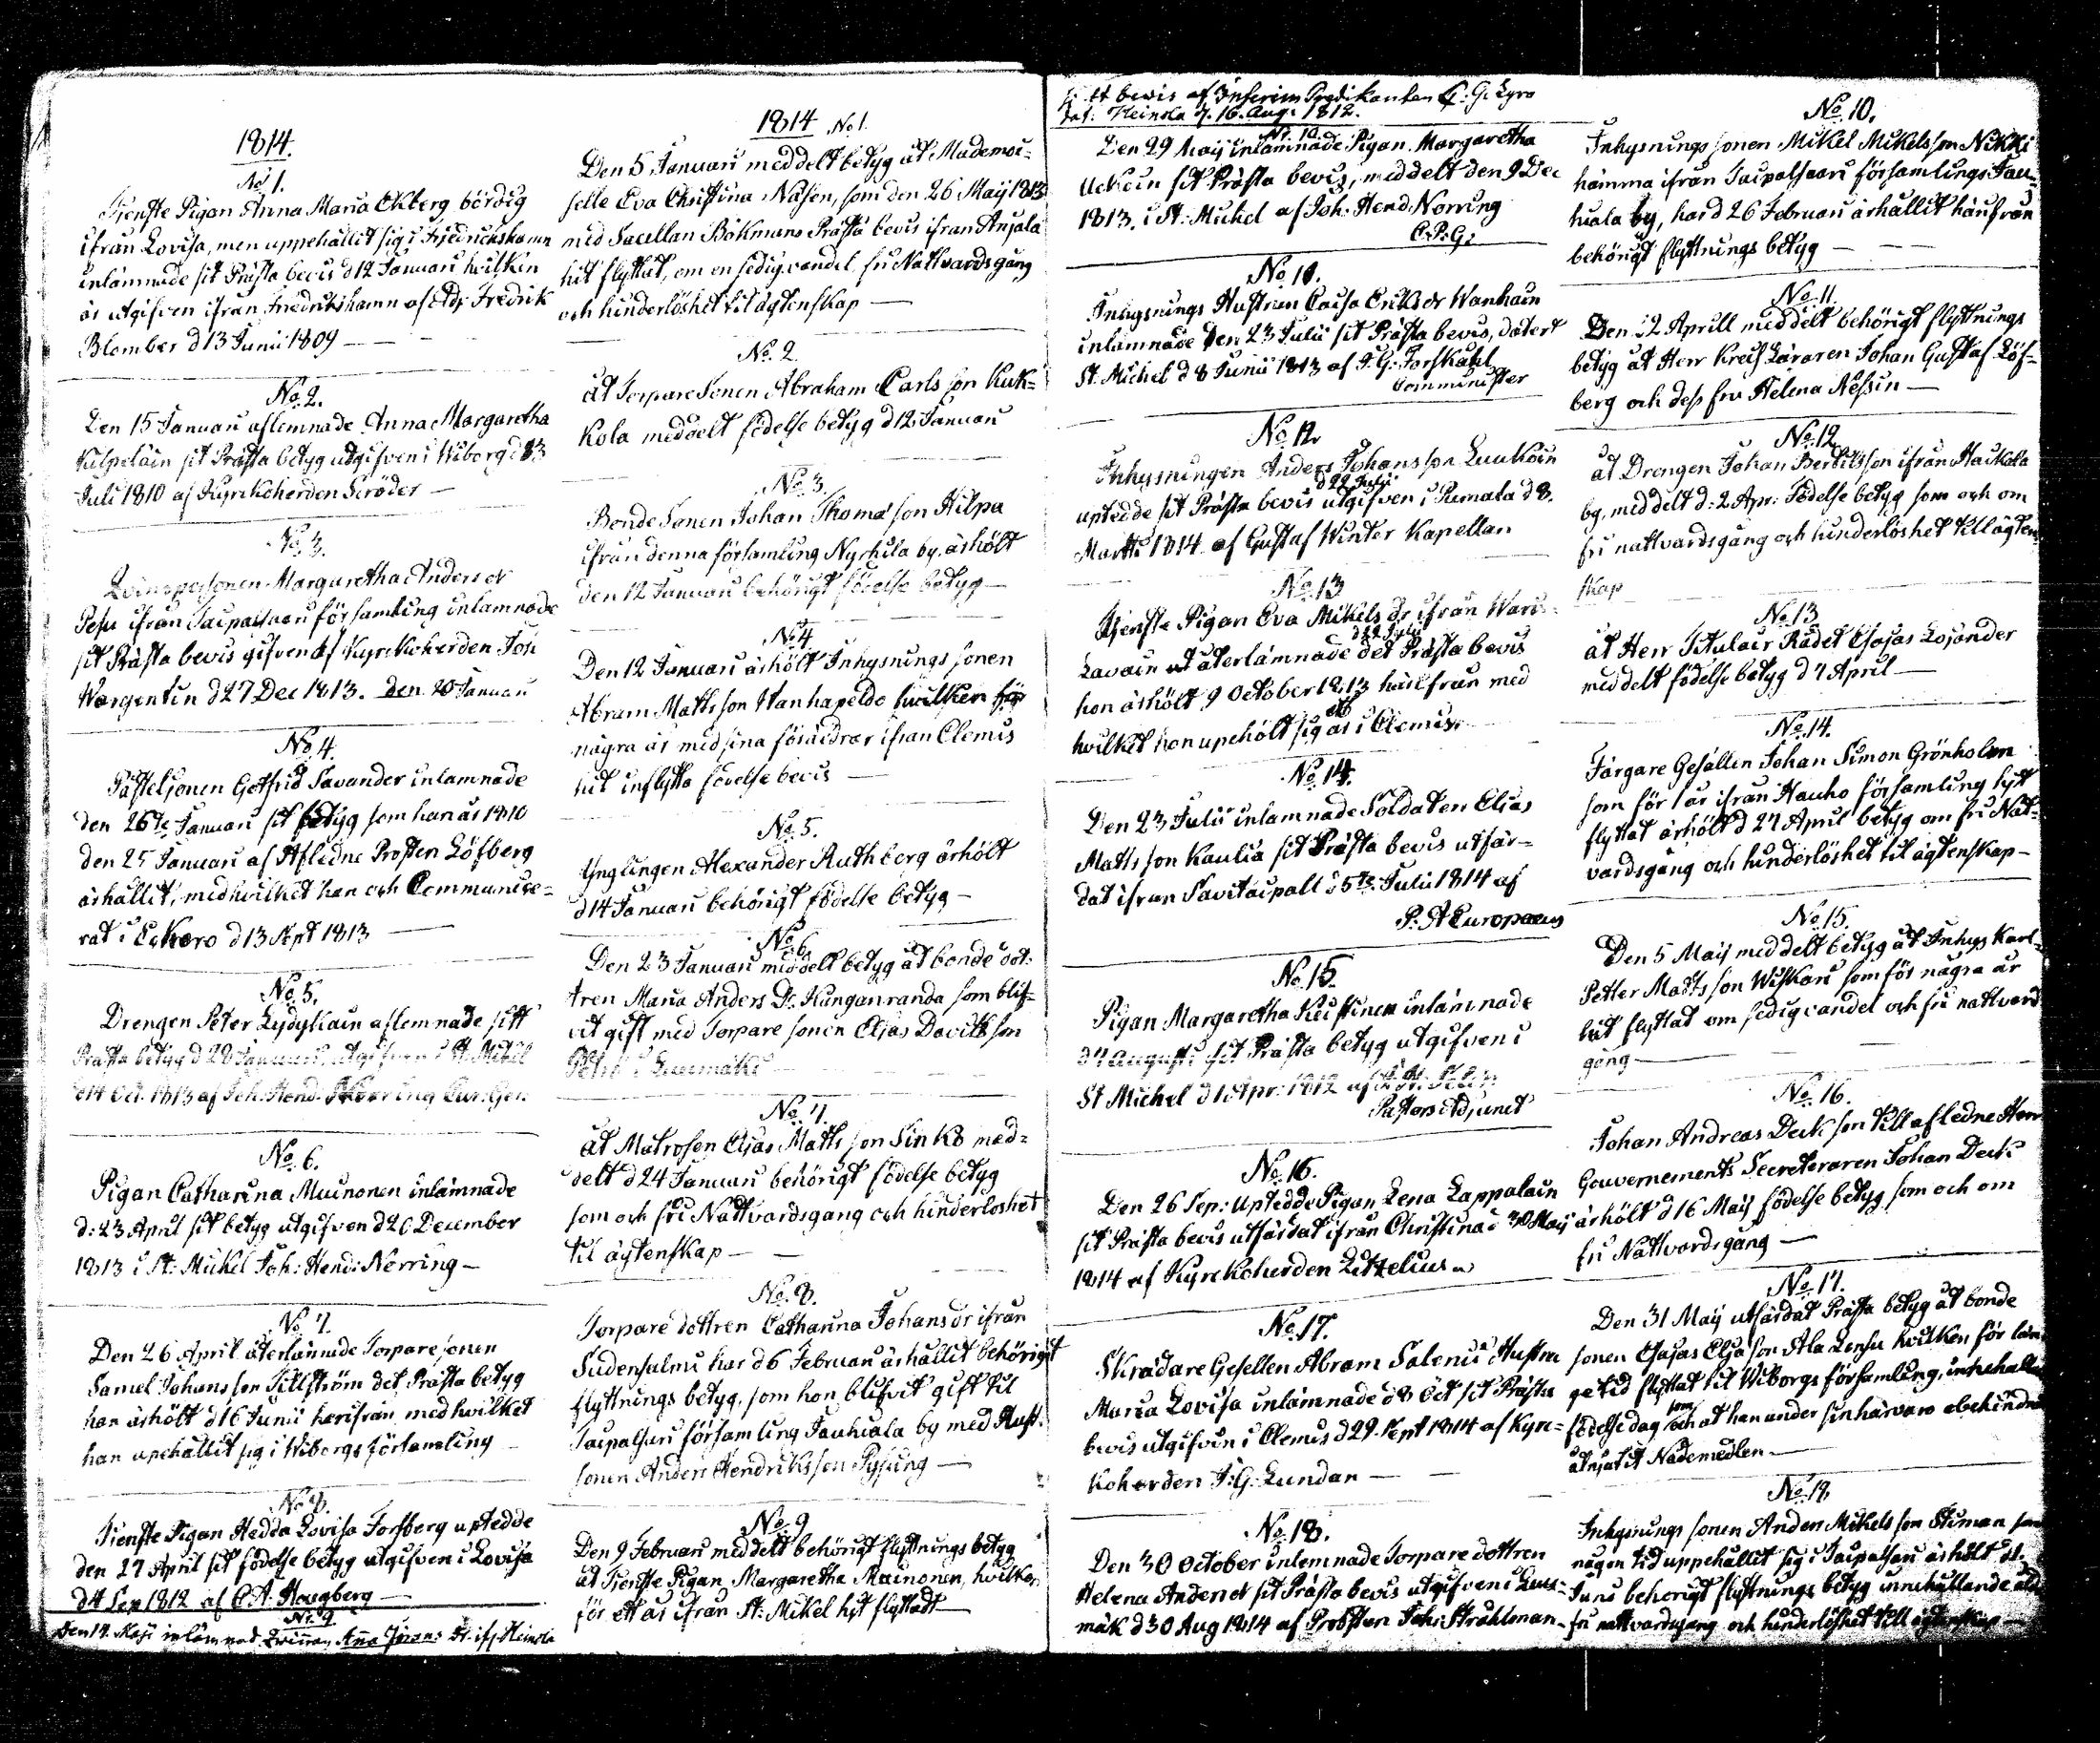 1814.
No 1.
Tjenste Pigan Anna Maria Ekberg bördig
ifrån Lovisa, men uppehållit sig i Friedrickshamn
inlämnade sit Prästa bevis d 12 Januari hvilken
är utgifven ifrån Fredrikshamn af Adj: Fredrik
Blomber d 13 Junii 1809
No. 2.
Den 15 Januari aflemnade Anna Margaretha
Kilpeläin sit Prästa betyg utgifven i Wiborg d 23
Juli 1810 af Kyrckoherden Scröder
No. 3.
Qvinspersonen Margaretha Anders dr
Pesu ifrån Taipalsaari församling inlamnade
sit Prästa bevis gifven af Kyrckoherden Joh
Wargentin d 27 Dec 1813. den 20 Januari
No. 4.
Fästelsonen Gotfrid Savander inlamnade
den 26te Januari sit betyg som han år 1810
den 25 Januari af Afledne Prosten Löfberg
ärhållit, med hvilket han och Communice-
rat i d 13 Sept 1813
No. 5.
Drengen Peter Lydykäin aflemnade sitt
Prästa betyg d 28 Januari, utgifven i St Mikel
d 14 Oct. 1813 af Joh: Hend: Norring Cur: Gen:
No. 6.
Pigan Catharina Muinonen inlämnade
d: 23 April sit betyg utgifven d 26 December
1813 i St: Mickel Joh: Hend: Norring
No 7.
Den 26 April återlämnade Torpare sonen
Samel Johansson Tillström det Prästa betyg
han ärhölt d 16 Junii härifrån med hvilket
han upehållit sig i Wiborgs församling
No 8.
Tjenste Pigan Hedda Lovisa Forsberg uptedde
den 27 April sit födelse betyg utgifven i Lovisa
d 4 Sep 1812 af C. A. Hougberg
Nr. 9
Den 14. Maji inlämnad Qvinnan Anna Görans Dr. ifr Heinola
1814 No 1.
Den 5 Januari meddelt betyg åt Mademoi-
selle Eva Christina Nasen, som den 26 Maij 1813
med Sacellan Bökmans Prästa bevis ifrån Anjala
hit flyttat, om en sedig vandel, fri Nattvardsgång
och hinderlöshet til ägtenskap
No. 2
åt Torpare Sonen Abraham Carls son Kuk-
kola meddelt födelse betyg d 12 Januari
No. 3.
Bonde Sonen Johan Thomasson Hilpa
ifrån denna församling Nyrhilä by, ärhölt
den 12 Januari behörigt födelse betyg
No 4
Den 12 Januari ärhölt Inhysnings sonen
Abram Mattsson Wanhapeldo hvilken för
några år med sina föräldrar ifrån Clemis
hit inflytta födelse bevis
No. 5.
Ynglingen Alexander Ruthberg ärhölt
d 14 Januari behörigt födelse betyg
No. 6
Den 23 Januari meddelt betyg åt bonde dot-
tren Maria Anders Dr. Kunganranda som blif-
vit gift med Torpare sonen Elias Davidsson
i Luumäki
No. 7.
åt Matrosen Elias Mattsson Sinko med-
delt d 24 Januari behörigt födelse betyg
som och fri Nattvardsgang och hinderloshet
til ägtenskap
No. 8.
Torpare dottren Catharina Johansdr ifrån
Sudensalmi har d 6 Februari ärhållit behörigt
flyttnings betyg, som hon blifvit gift til
Taipalsari församling Jauhiala by med
sonen Anders Hendriksson
No. 9
Den 9 Februari meddelt behörigt flyttnings betyg
åt Tjenste Pigan Margaretha Muinonen, hvilken
för ett år ifrån St: Mikel hyt flyttadt
sitt bevis af Interims Predikanten C: G: Lyra
dat: Heinola d. 16. Aug: 1812.
Nr. 10.
Den 29 Maij inlamnade Pigan Margaretha
Uckoin sit Prästa bevis, meddelt den 9 Dec
1813. i St: Mickel af Joh: Hend: Norring
C: P: G:
No. 11.
Inhysnings Hustrun Caisa Eriksdr Wanhain
inlämnade den 23 Julii sit Prästa bevis, datert
St. Michel d 8 Junii 1813 af J. G: Forskåhl
Comminister
No. 12.
Inhysningen Anders Johansson Luukoin
d 22 Julii
uptedde sit Prästa bevis utgifven i Pumala d 8.
Martti 1814 af Gustaf Winter Kapellan
No. 13
Tjenste Pigan Eva Mikels dr ifrån
återlämnade det Prästa bevis
hon ärhölt 9 October 1813 härifrån med
hvilket hon upehölt sig i Clemis.
No. 14.
Den 23 Julii inlamnade Soldaten Elias
Mattsson Kaulia sit Prästa bevis utfär-
dat ifrån Savitaipall d 5te Julii 1814 af
P. A Europaeus
No. 15.
Pigan Margaretha inlämnade
d 7 augusti sit Prästa betyg utgifven i
St Michel d 1 Apr: 1812 af
Pastors Adjunct
No. 16.
Den 26 Sep: Uptedde Pigan Lena Lappalain
sit Prästa bevis utfärdat ifrån Christina d 30 Maij
1814 af Kyrckoherden
No. 17.
Skrädare Gesellen Abram Salenii Hustru
Maria Lovisa inlämnade d 8 Oct sit Prästa
bevis utgifven i Clemis d 29. Sept 1814 af Kyrc-
koherden J: G: Lundan
No. 18.
Den 30 October inlemnade Torpare dottren
Helena Andersdr sit Prästa bevis utgifven i Luu-
mäk d 30 Aug 1814 af Probsten Joh: Stråhlman
No. 10.
Inhysnings sonen Mikel Mikelsson
ifrån Taipalsaari församlings Jau-
hiala by, har d 26 Februari ärhållit härifrån
behörigt flyttnings betyg
No. 11.
Den 12 Aprill meddelt behörigt flyttnings
betyg åt Herr Kreis Läraren Johan Gustaf Löf-
berg och dess fru Helena
No. 12
åt Drengen Johan Bertilsson ifrån Haikola
by, meddelt d: 2 Apr: Födelse betyg som och om
fri nattvardsgång och hinderlöshet till ägten-
skap
No. 13
åt Herr Titulair Rådet Esaias Lojander
meddelt födelse betyg d 7 April
No. 14.
Färgare Gesällen Johan Simon Grönholm
som för 1 år ifrån Hauho församling hyt
flyttat ärhölt d 27 April betyg om fri Nat-
vardsgång och hinderlöshet til ägtenskap
No. 15.
Den 5 Maij meddelt betyg åt Inhys Karl
Petter Mattsson Wiskari som för några år
hit flyttat om sedig vandel och fri nattvard
gång
No. 16.
Johan Andreas Deck son till afledne Herr
Gouvernements Secreteraren Johan Deck
ärhölt d 16 Maij födelse betyg som och om
fri Nattvardsgång
No. 17.
Den 31 Maij utfärdat Prästa betyg åt bonde
sonen Esaias Eljasson Ala Lensu hvilken för län-
ge tid flyttat til Wiborgs församling, innehallande
som
födelsedag och at han under sin härvaro obehindrad
åtnjutit Nådemedlen
No. 18.
Inhysnings sonen Anders Mikelsson som
någon tid uppehållit sig i Taipalsari ärhölt d 1.
Juni behörigt flyttnings betyg innehållande
fri nattvardsgang och hinderlöshet till ägtenskap